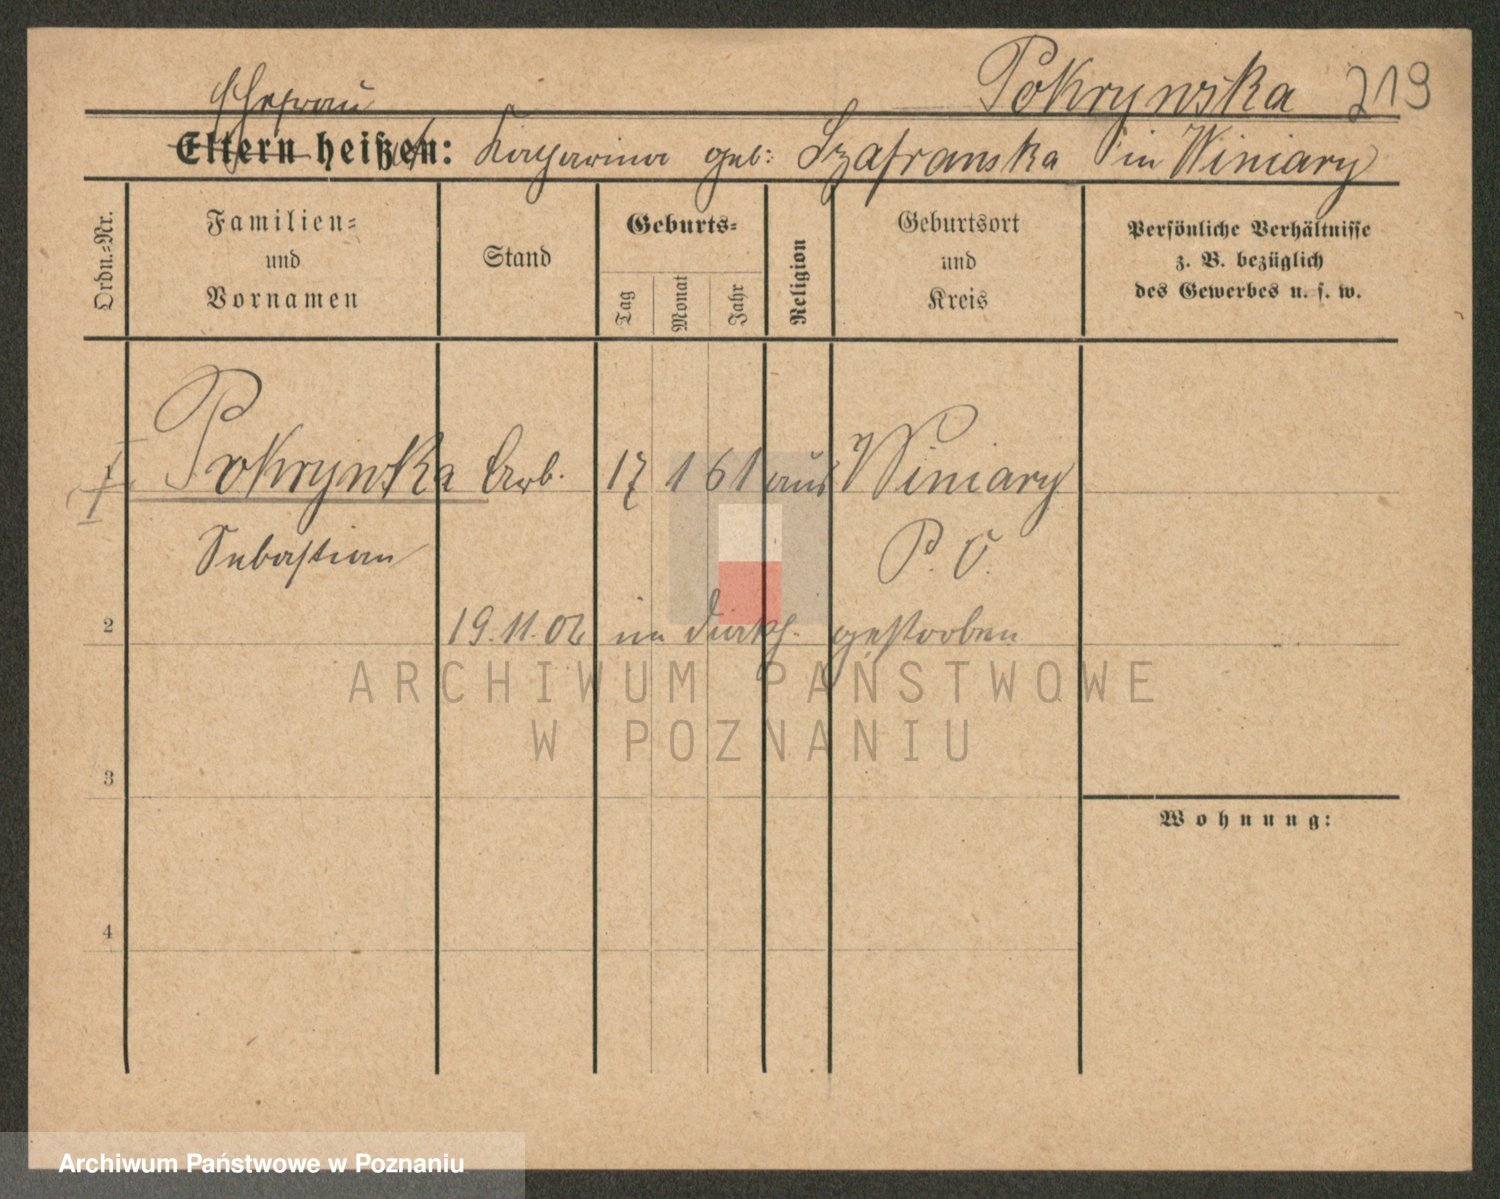 Pokrywska 219
Ehefrau
Eltern heißen: Katharina geb: Szafranska in Winiary
Ordn.-Nr.
Familien-
und
Vornamen
Stand
Geburts-
Tag
Monat
Jahr
Religion
Geburtsort
und
Kreis
Persönliche Verhältnisse
z. B. bezüglich
des Gewerbes u. s. w.
Pokrywka Arb. 17 1 61 aus Winiary
Sebastian P. O.
2 19.11.02 im gestorben
3
Wohnung:
4
ARCHIWUM PAŃSTWOWE
W POZNANIU
Archiwum Państwowe w Poznaniu